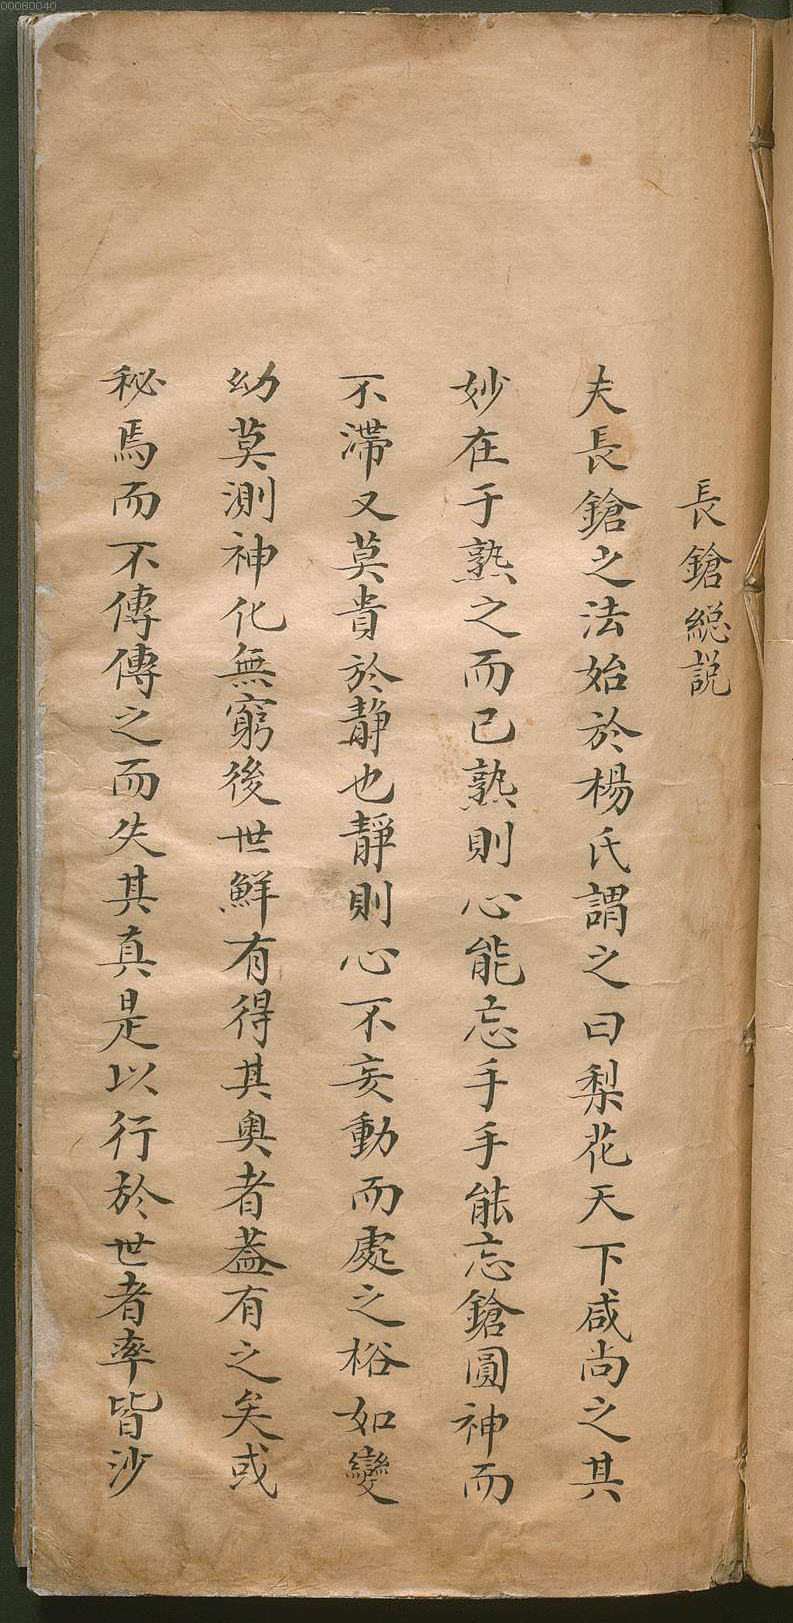 00080040
長鎗総説
夫長鎗之法始於楊氏謂之曰梨花天下咸尚之其
妙在于熟之而已熟則心能忘手手能忘鎗圓神而
不滯又莫貴於静也靜則心不妄動而處之裕如變
幼莫測神化無窮後世鮮有得其奥者蓋有之矣或
秘焉而不傳傳之而失其真是以行於世者率皆沙